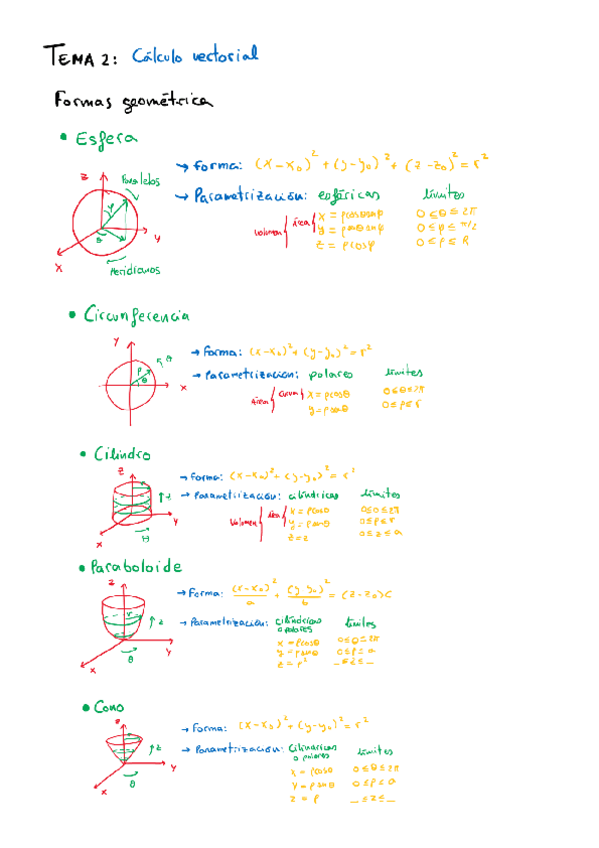 TEMA 2: Cálculo vectorial
Formas geométrica
• Esfera
→ Forma: (x-x₀)² + (y-y₀)² + (z-z₀)² = r²
z Paralelos
→ Parametrización: esféricas límites
volumen { área { x = ρcosθsinφ 0≤θ≤2π
y = ρsinθsinφ 0≤φ≤π/2
z = ρcosφ 0≤ρ≤R
φ θ y
x Meridianos
• Circunferencia
y
→ Forma: (x-x₀)² + (y-y₀)² = r²
→ Parametrización: polares límites
ρ θ θ x
área { circun { x = ρcosθ 0≤θ≤2π
y = ρsinθ 0≤ρ≤r
• Cilindro
z
→ Forma: (x-x₀)² + (y-y₀)² = r²
→ Parametrización: cilíndricas límites
volumen { área { x = ρcosθ 0≤θ≤2π
y = ρsinθ 0≤ρ≤r
z = z 0≤z≤a
y
x
• Paraboloide
z
→ Forma: (x-x₀)²/a + (y-y₀)²/b = (z-z₀)c
→ Parametrización: cilíndricas o polares límites
x = ρcosθ 0≤θ≤2π
y = ρsinθ 0≤ρ≤a
z = ρ² _≤z≤_
r z y
x θ
• Cono
→ Forma: (x-x₀)² + (y-y₀)² = r²
→ Parametrización: cilíndricas o polares límites
x = ρcosθ 0≤θ≤2π
y = ρsinθ 0≤ρ≤a
z = ρ _≤z≤_
z y
x θ